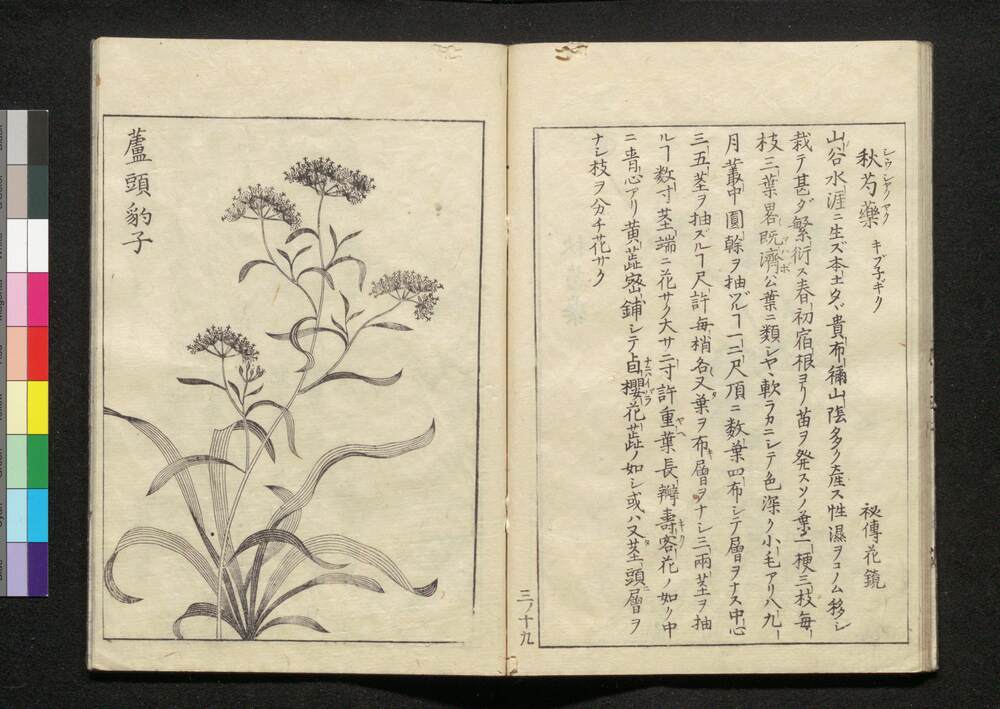 秋芍藥 キブ子ギク 祕傳花鏡
シウシヤクヤク
山谷水涯ニ生ズ本土タヾ貴布禰山陰多ク産ス性濕ヲコノム移シ
栽テ甚ダ繁衍ス春初宿根ヨリ苗ヲ発スソノ葉一梗三枝毎
枝三葉畧阮濟公葉ニ類シヤヽ軟ラカニシテ色深ク小毛アリ八九
月叢中圓幹ヲ抽ヅルヿ一二尺頂ニ数葉四布シテ層ヲナス中心
三五茎ヲ抽ズルヿ尺許毎梢各又葉ヲ布層ヲナシ三兩茎ヲ抽
ルヿ数寸茎端ニ花サク大サ二寸許重葉長瓣壽客花ノ如ク中
ヤヘ
キク
ニ青心アリ黄蕋密鋪シテ白櫻花蕋ノ如シ或ハ又茎頭層ヲ
ナシ枝ヲ分チ花サク
三ノ十九
蘆頭豹子